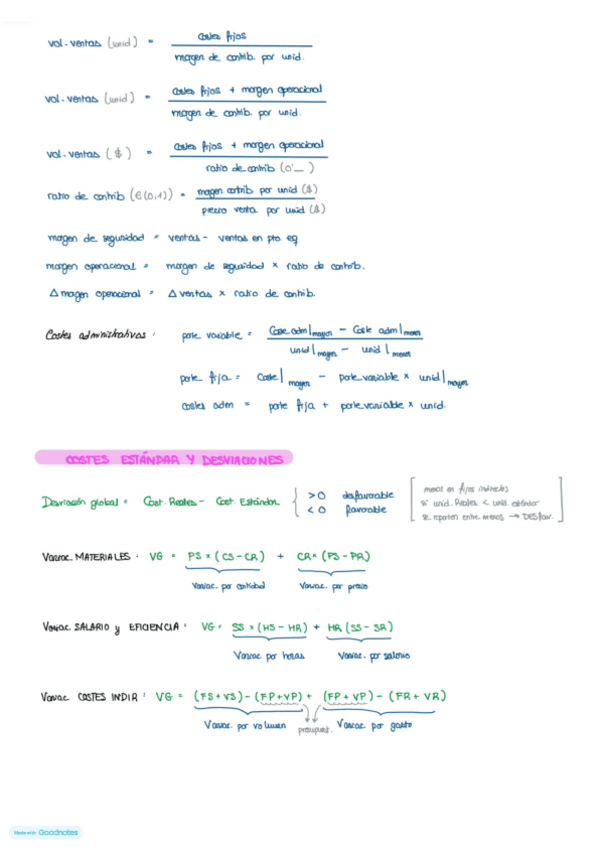 vol-ventas (unid) = costes fijos
margen de contrib. por unid.
vol-ventas (unid) = costes fijos + margen operacional
margen de contrib. por unid.
vol-ventas ($) = costes fijos + margen operacional
ratio de contrib (0'__)
ratio de contrib (∈(0,1)) = margen contrib por unid ($)
precio venta por unid ($)
margen de seguridad = ventas - ventas en pto eq
margen operacional = margen de seguridad × ratio de contrib.
Δ margen operacional = Δ ventas × ratio de contrib.
Costes administrativos: parte variable = Coste adm|mayor - Coste adm|menor
unid|mayor - unid|menor
parte fija = Coste|mayor - parte variable × unid|mayor
costes adm = parte fija + parte variable × unid.
COSTES ESTÁNDAR Y DESVIACIONES
Desviación global = Cost. Reales - Cost. Estándar { >0 desfavorable
<0 favorable
menos en fijos indirectos
si unid. Reales < unid. estándar
se reparten entre menos → DESfav.
Variac. MATERIALES: VG = PS × (CS-CR) + CR × (PS-PR)
Variac. por cantidad Variac. por precio
Variac. SALARIO y EFICIENCIA: VG = SS × (HS - HR) + HR (SS - SR)
Variac. por horas Variac. por salario
Variac. COSTES INDIR: VG = (FS+VS) - (FP+VP) + (FP+VP) - (FR+VR)
Variac. por volumen presupuest. Variac. por gasto
Made with Goodnotes